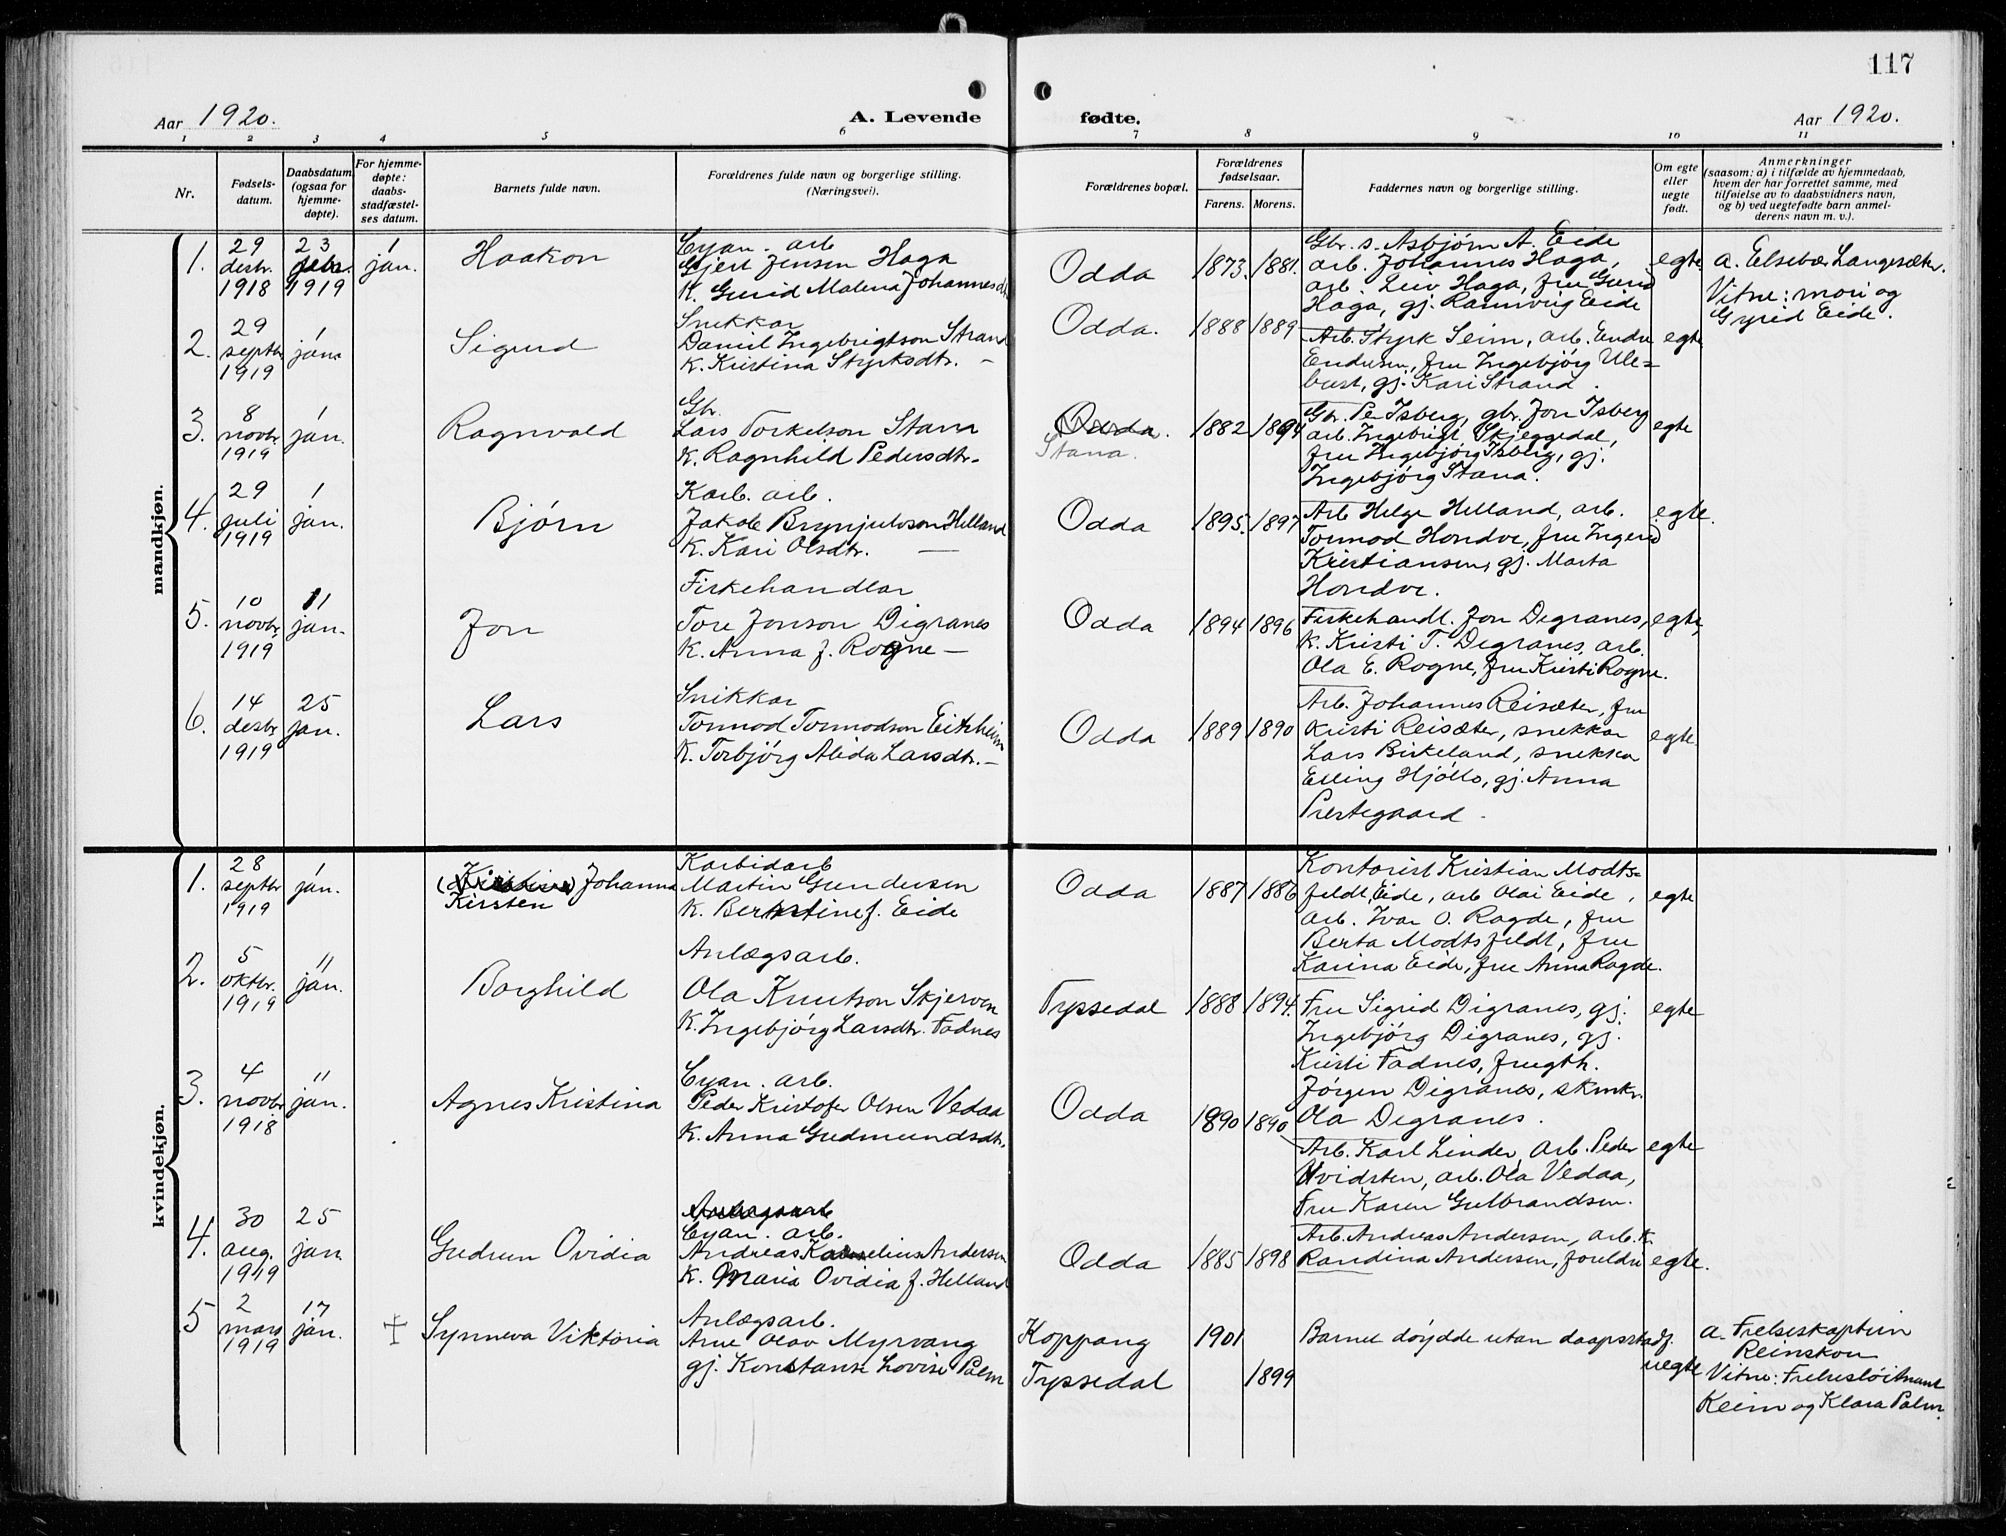 117
Aar 1920.
A. Levende
fødte.
Aar 1920.
1 2 3 4 5 6 7 8 9 10 11
Nr.
Fødsels-
datum.
Daabsdatum
(ogsaa for
hjemme-
døpte).
For hjemme-
døpte:
daabs-
stadfæstel-
ses datum.
Barnets fulde navn.
Forældrenes fulde navn og borgerlige stilling.
(Næringsvei).
Forældrenes bopæl.
Forældrenes
fødselsaar.
Farens. Morens.
Faddernes navn og borgerlige stilling.
Om egte
eller
uegte
født.
Anmerkninger
(saasom: a) i tilfælde av hjemmedaab,
hvem der har forrettet samme, med
tilføielse av to daabsvidners navn,
og b) ved uegtefødte barn anmel-
derens navn m. v.).
mandkjøn.
1.
29
desbr.
1918
23
febr.
1919
1
jan.
Haakon
Cyan. arb
Gjert Jensen Haga
K. Gurid Malena Johannesdtr
Odda
1873. 1881.
Gbr. s. Asbjørn A. Eide
arb. Johannes Haga,
arb. Leiv Haga, fru Gurid
Haga, gj. Rannveig Eide
egte
a. Elsebær Langesæter.
Vitne: mori og
Gyrid Eide.
2.
29
septbr
1919
1
jan.
Sigurd
Snikkar
Daniel Ingebrigtson Strand
K. Kristina Styrksdtr. –
Odda.
1888 1889
Arb. Styrk Seim, arb. Endre
Endresen, fru Ingebjørg Ule-
bust, gj. Kari Strand.
egte
3.
8
novbr.
1919
1
jan.
Ragnvald
Gbr.
Lars Torkelson Stana
K. Ragnhild Pedersdtr.
Odda.
Stana.
1882 1894
Gbr. Pe Isberg, gbr. Jon Isberg
arb. Ingebrigt Skjeggedal,
fru Ingebjørg Isberg, gj.
Ingebjørg Stana.
egte
4.
29
juli
1919
1
jan.
Bjørn
Karb. arb.
Jakob Brynjulvson Helland
K. Kari Olsdtr. —
Odda
1895. 1897
Arb Helge Helland, arb.
Tormod Hondve, fru Ingerid
Kristiansen, gj. Marta
Hondve.
egte.
5.
10
novbr.
1919
11
jan.
Jon
Fiskehandlar
Tore Jonson Digranes
K. Anna f. Rogne —
Odda
1894 1896
Fiskehandl. Jon Digranes,
K. Kristi T. Digranes, arb.
Ola E. Rogne, fru Kristi Rogne.
egte,
6.
14
desbr
1919
25
jan.
Lars
Snikkar
Tormod Tormodson Eitrheim
K. Torbjørg Alida Larsdtr. –
Odda
1889 1890
Arb. Johannes Reisæter, fru
Kristi Reisæter, snekkar
Lars Birkeland, snekkar
Elling Hjøllo, gj. Anna
Prestegaard.
egte.
kvindekjøn.
1.
28
septbr
1919
1
jan.
(Kristine) Johanna
Kirsten
Karbidarb
Martin Gundersen
K. Berntine f. Eide
Odda
1887 1886
Kontorist Kristian Modts-
feldt, Eide, arb Olai Eide,
arb. Ivar O. Ragde, fru
Berta Modtsfeldt, fru
Karina Eide, fru Anna Ragde.
egte
2.
5
oktbr.
1919
11
jan.
Borghild
Anlægsarb.
Ola Knutson Skjerven
K. Ingebjørg Larsdtr. Fadnes
Tyssedal
1888 1894.
Fru Sigrid Digranes, gj.
Ingebjørg Digranes, gj.
Kirsti Fadnes, frugth.
Jørgen Digranes, skmkr.
Ola Digranes.
egte
3.
4
novbr
1918
11
jan.
Agnes Kristina
Cyan. arb.
Peder Kristofer Olsen Vedaa
K. Anna Gudmundsdtr.
Odda
1890 1890
Arb. Karl Linder, Arb. Peder
Hvidsten, arb. Ola Vedaa,
Fru Karen Gulbrandsen.
egte
4.
30
aug.
1919
25
jan
Gudrun Ovidia
Anlægsarb
Cyan. arb.
Andreas Kornelius Andersen
K. Maria Ovidia f. Helland
Odda
1885 1898
Arb. Andreas Andersen, arb. K.
Randina Andersen, foreldri
egte.
5
2
mars
1919
17
jan.
†
Synneva Viktoria
Anlægsarb.
Arne Olav Myrvang
gj. Konstanse Lovise Palm
Koppang
Tyssedal
1901
1899
Barnet døydde utan daapsstadf.
uegte
a. Frelseskaptein
Reinskou
Vitne: Frelsesløitnant
Keim og Klara Palm.